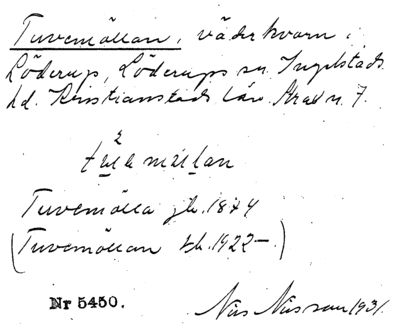 Tuvemöllan, väderkvarn i
Löderup, Löderups sn. Ingelstads
hd. Kristianstads län. Skrad n. 7.
Tuvemölla jb. 1844
(Tuvemöllan tk. 1922–)
Nr 5450.
Nils Nilsson 1931.